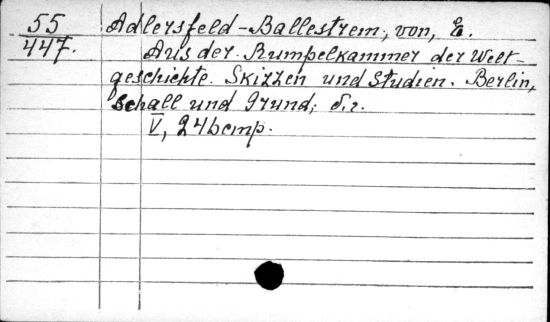 55
447.
Adlersfeld-Ballestrem, von, E.
Aus der Rumpelkammer der Welt-
geschichte. Skizzen und Studien. Berlin,
Schall und Grund, б.г.
V, 246 стр.